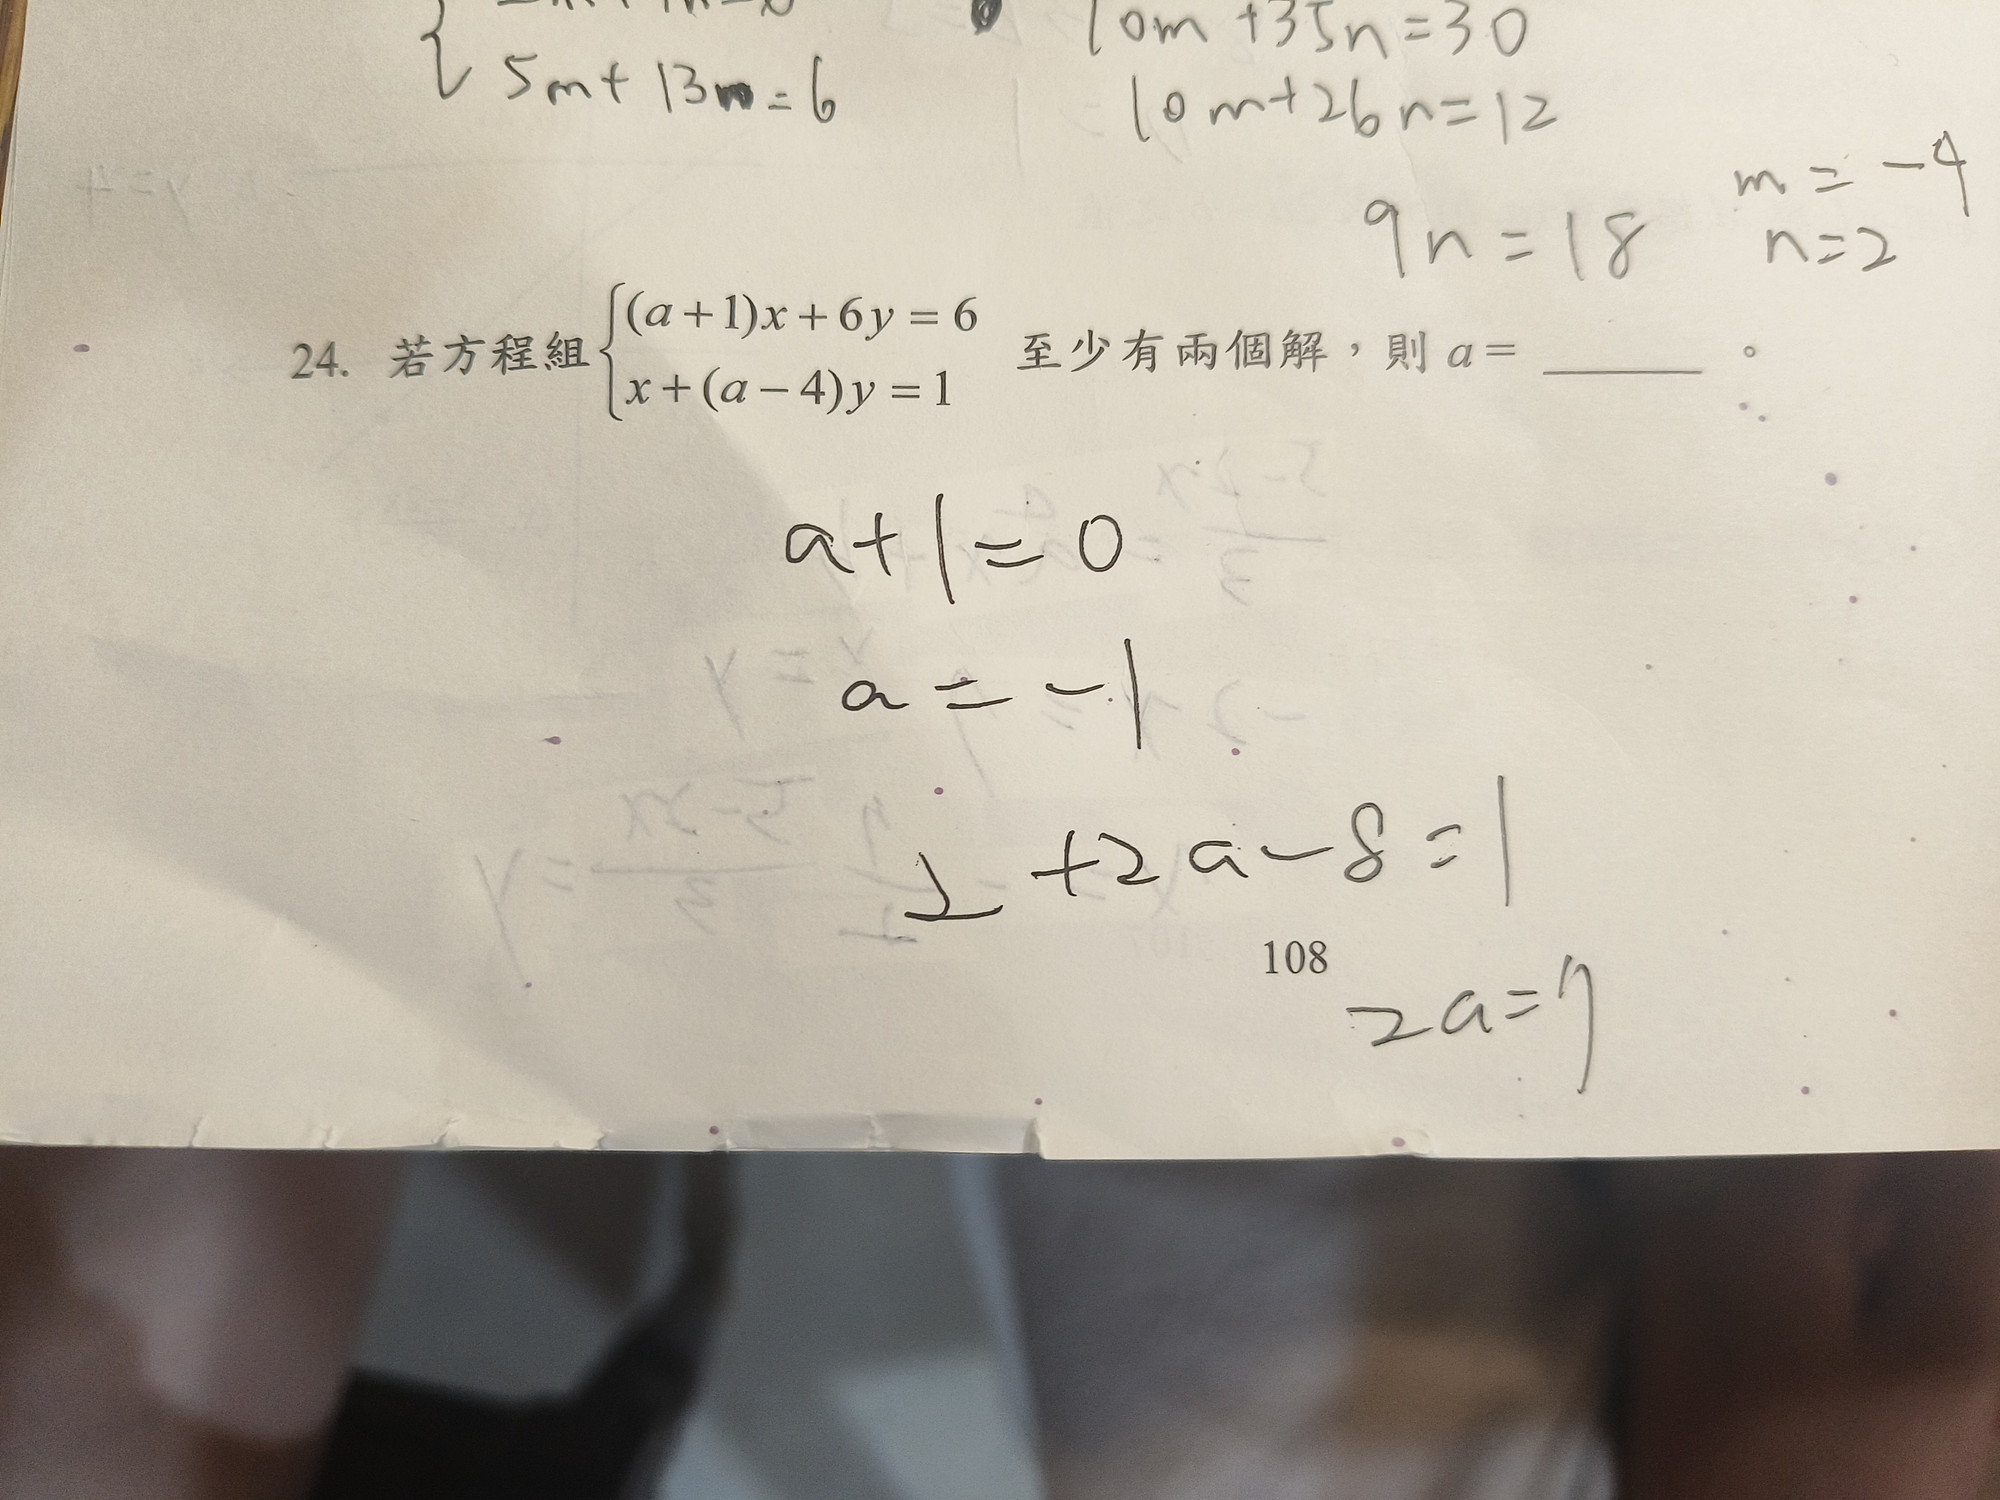 5m+13n=6
10m+35n=30
10m+26n=12
9n=18
m=-4
n=2
24. 若方程組{(a+1)x+6y=6
x+(a-4)y=1 至少有兩個解，則a=______。
a+1=0
a=-1
2+2a-8=1
108
2a=7